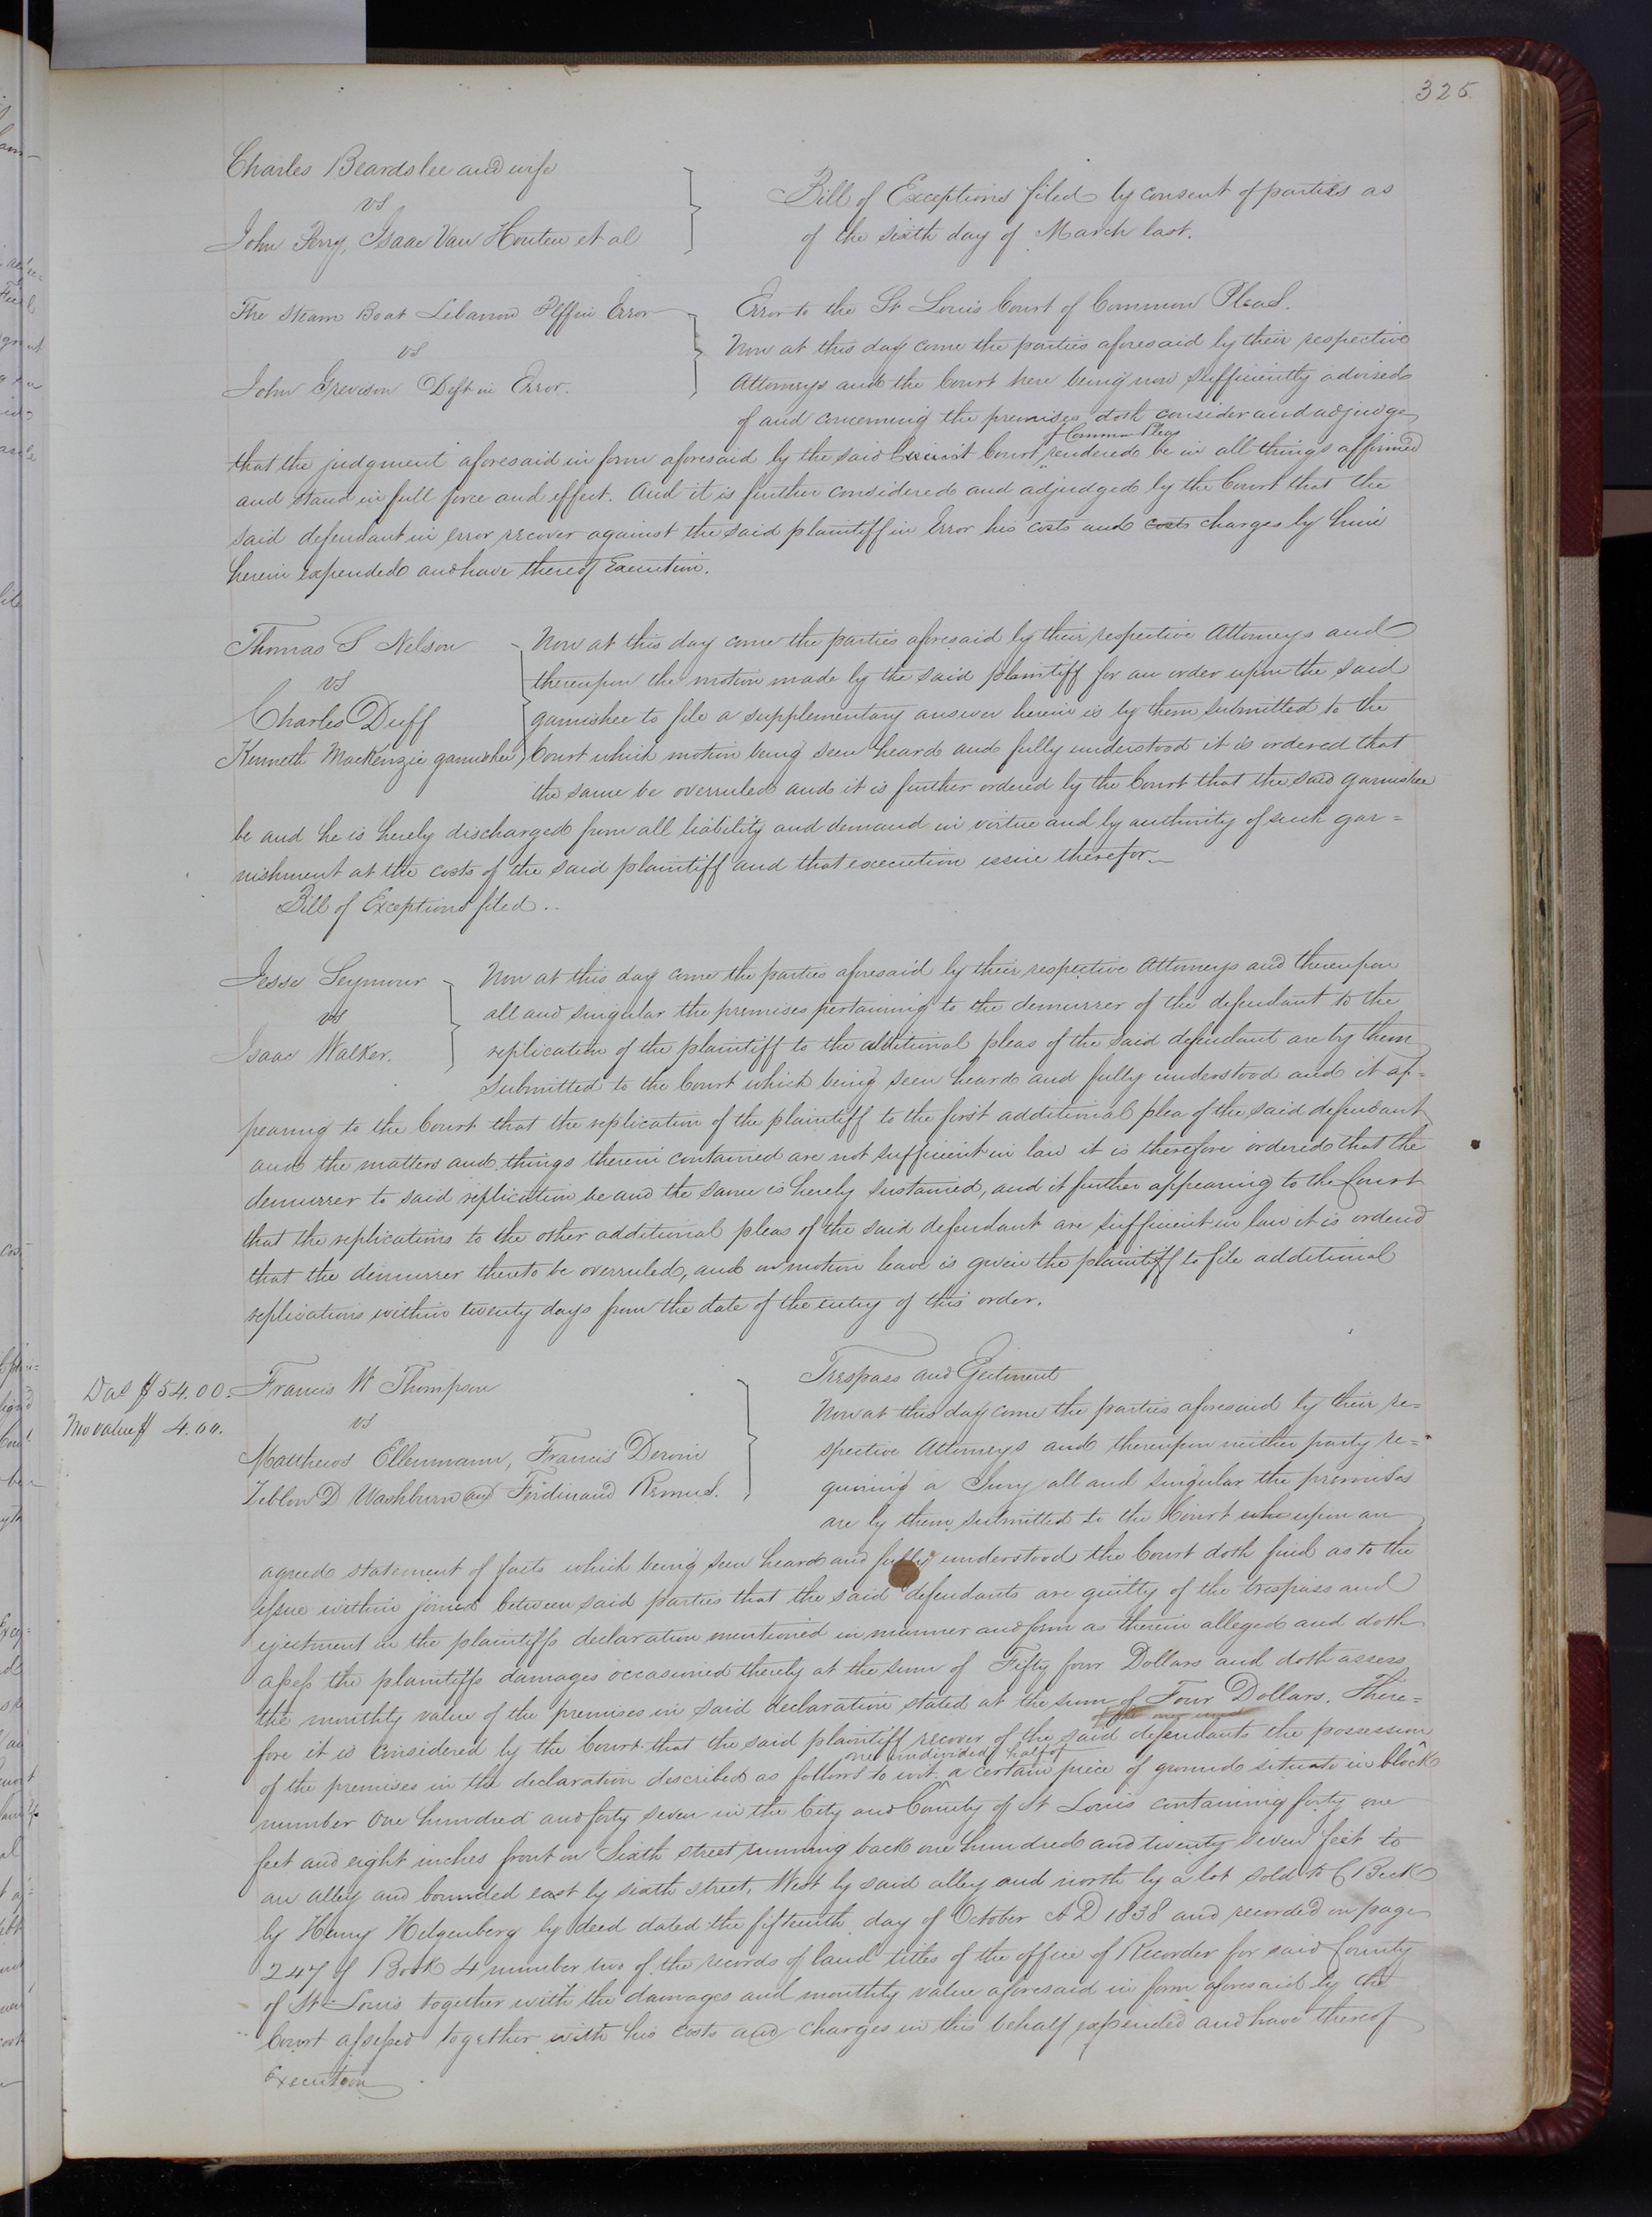 325
Charles Beardslee and wife
vs
John Perry, Isaac Van Houten et al
Bill of Exceptions filed by consent of parties as
of the sixth day of March last.
The Steam Boat Lebanon Plff in Error
vs
John Grevison Deft in Error.
Error to the St Louis Court of Common Pleas.
Now at this day come the parties aforesaid by their respective
Attorneys and the Court here being now sufficiently advised
of and concerning the premises doth consider and adjudge
of Common Pleas
that the judgment aforesaid in form aforesaid by the said Circuit Court rendered be in all things affirmed
and stand in full force and effect. And it is further considered and adjudged by the Court that the
said defendant in error recover against the said plaintiff in Error his costs and costs charges by him
herein expended and have thereof Execution.
Thomas S Nelson
vs
Charles Duff
Kenneth MacKenzie garnishee
Now at this day come the parties aforesaid by their respective Attorneys and
thereupon the motion made by the said plaintiff for an order upon the said
garnishee to file a supplementary answer herein is by them submitted to the
Court which motion being seen heard and fully understood it is ordered that
the same be overruled and it is further ordered by the Court that the said garnishee
be and he is hereby discharged from all liability and demand in virtue and by authority of such gar=
nishment at the costs of the said plaintiff and that execution issue therefor.
Bill of Exceptions filed..
Jesse Seymour
vs
Isaac Walker.
Now at this day come the parties aforesaid by their respective Attorneys and thereupon
all and singular the premises pertaining to the demurrer of the defendant to the
replication of the plaintiff to the additional pleas of the said defendant are by them
submitted to the Court which being seen heard and fully understood and it ap=
pearing to the Court that the replication of the plaintiff to the first additional plea of the said defendant
and the matters and things therein contained are not sufficient in law it is therefore ordered that the
demurrer to said replication be and the same is hereby sustained, and it further appearing to the Court
that the replications to the other additional pleas of the said defendant are sufficient in law it is ordered
that the demurrer thereto be overruled, and on motion leave is given the plaintiff to file additional
replications within twenty days from the date of the entry of this order.
Das $54.00.
Mo value $ 4.00.
Francis W Thompson
vs
Matthews Ellenmann, Francis Deroin
Zeblon D Washburn and Ferdinand Remus.
Trespass and Ejectment
Now at this day come the parties aforesaid by their re=
spective Attorneys and thereupon neither party re=
quiring a Jury all and singular the premises
are by them submitted to the Court upon an
agreed statement of facts which being seen heard and fully understood the Court doth find as to the
issue within joined between said parties that the said defendants are guilty of the trespass and
ejectment in the plaintiffs declaration mentioned in manner and form as therein alleged and doth
assess the plaintiffs damages occasioned thereby at the sum of Fifty four Dollars and doth assess
the monthly value of the premises in said declaration stated at the sum of Four Dollars. There=
fore it is considered by the Court that the said plaintiff recover of the said defendants the possession
one undivided half of
of the premises in the declaration described as follows to wit a certain piece of ground situate in block
number One hundred and forty seven in the City and County of St Louis containing forty one
feet and eight inches front on Sixth street running back one hundred and twenty seven feet to
an alley and bounded east by sixth street, West by said alley and north by a lot sold to C Beck
by Henry Helgenberg by deed dated the fifteenth day of October A D 1838 and recorded on page
247 of Book 4 number two of the records of land titles of the office of Recorder for said County
of St. Louis together with the damages and monthly value aforesaid in form aforesaid by the
Court assessed together with his costs and charges in this behalf expended and have thereof
Execution